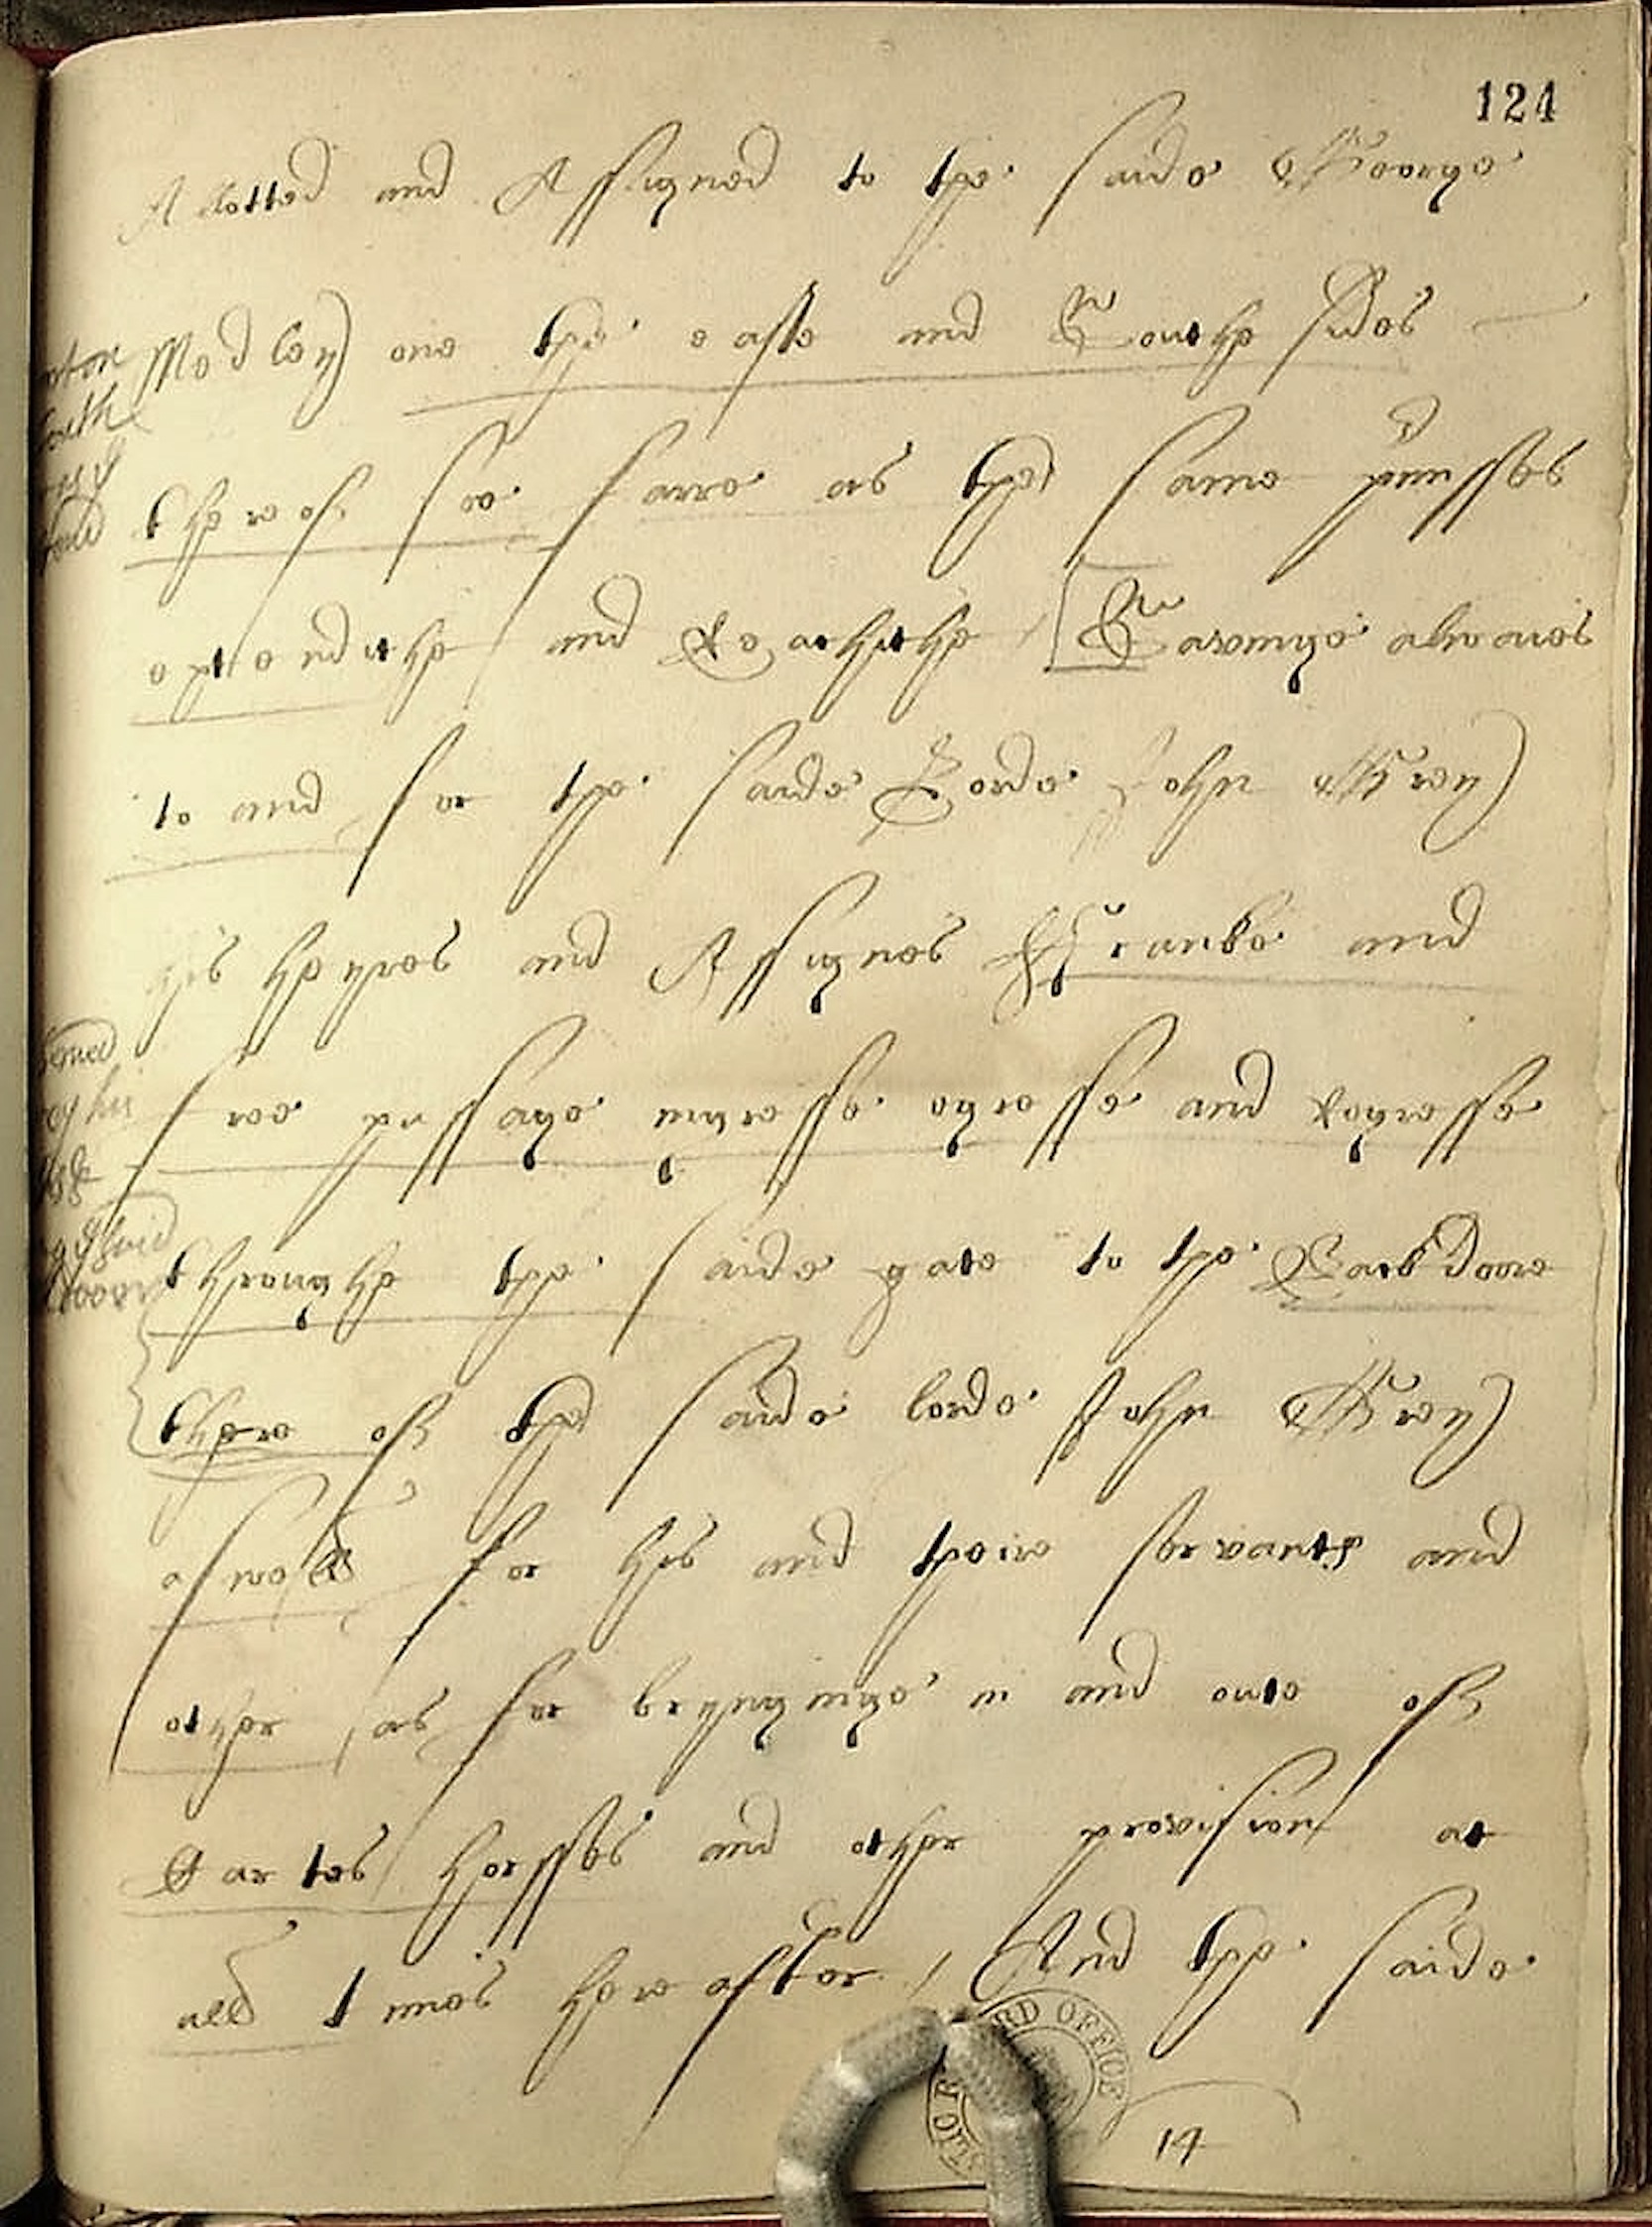 124
Allotted and Assigned to the saide George
Medley one the easte and Southe sides
thereof soe farre as the same p'misses
extendithe and Reachithe / Savinge alwaies
to and for the saide Lorde John Grey
his heyres and Assignes Francke and
free passage ingresse egresse and Regresse
throughe the saide gate to the Back Doore
there of the saide lorde John Grey
aswell for his and theire servants and
other / as for bryngynge in and oute of
Cartes horsses and other provision at
all times hereafter / And the saide
RD OFFICE
14